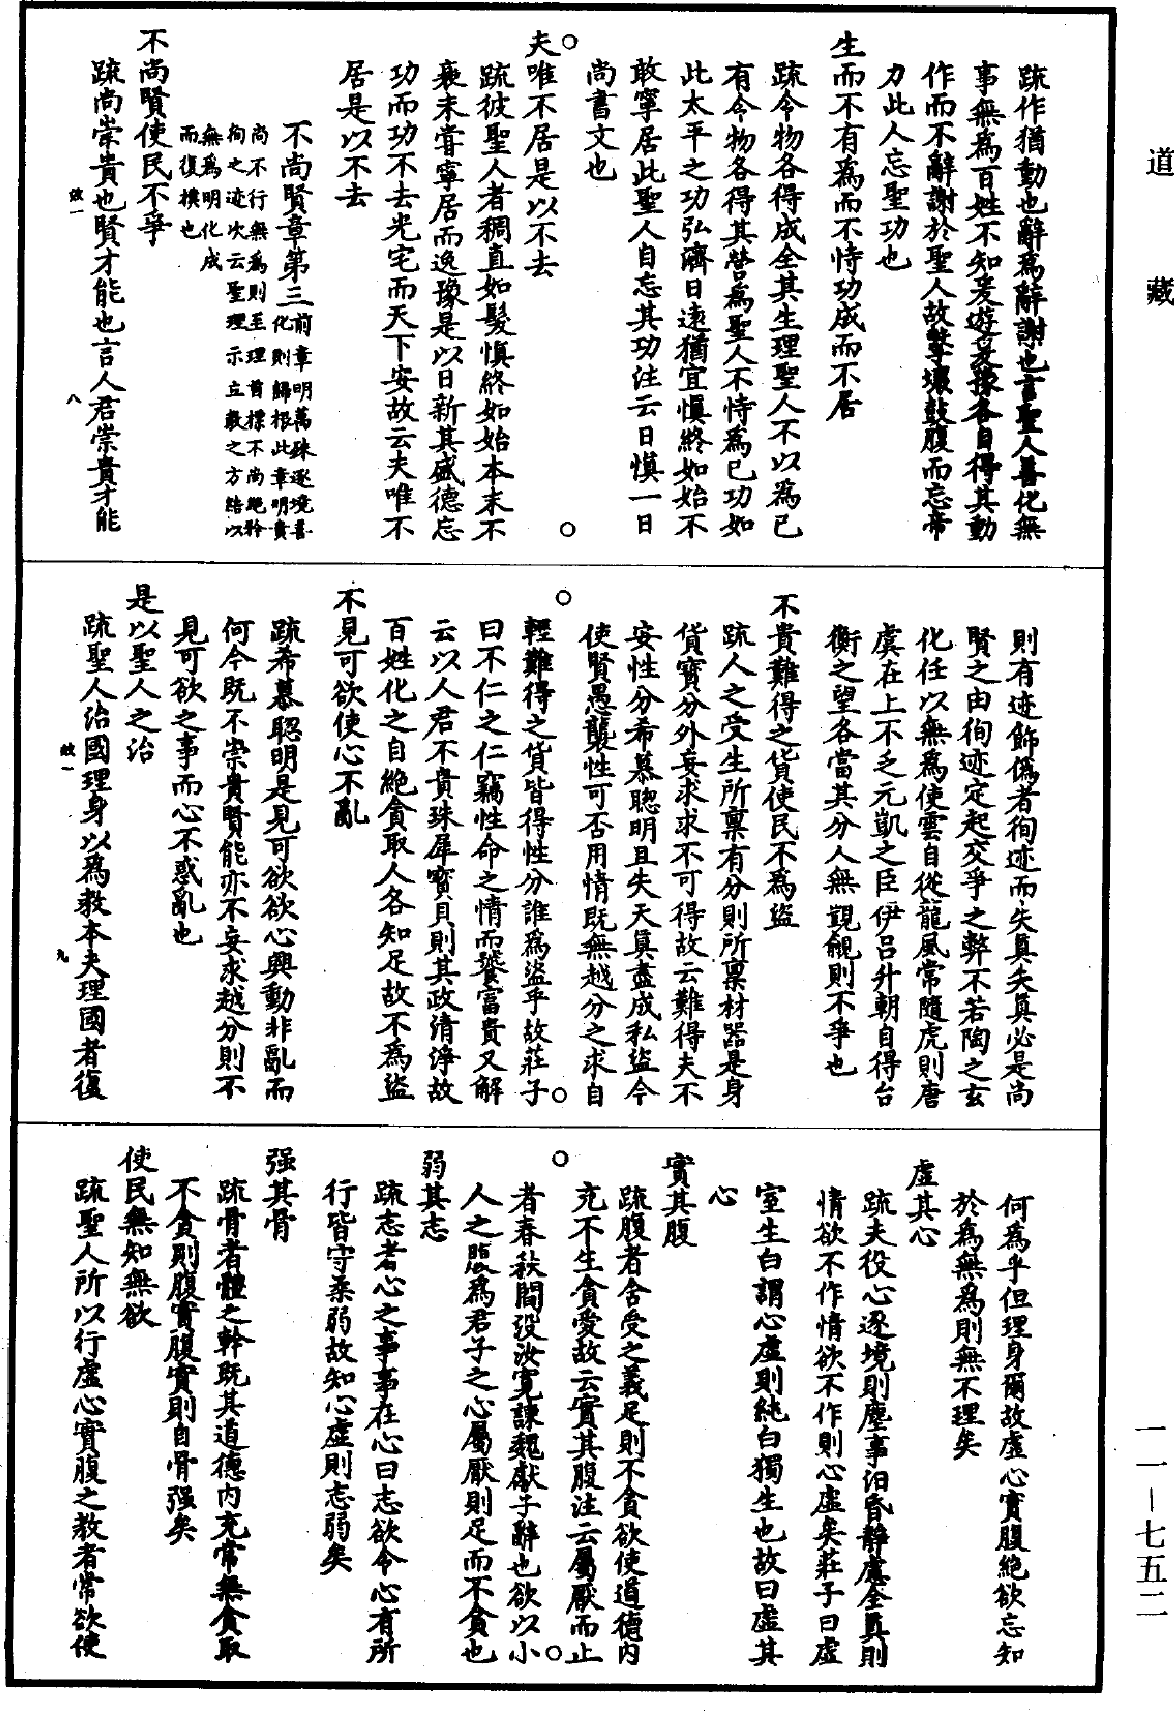 道藏
疏作猶動也辭爲辭謝也言聖人善化無
事無爲百姓不知爰遊爰豫各自得其動
作而不辭謝於聖人故擊壤鼓腹而忘帝
力此人忘聖功也
生而不有爲而不恃功成而不居
疏令物各得成全其生理聖人不以爲已
有令物各得其營爲聖人不恃爲已功如
此太平之功弘濟日遠猶宜慎終如始不
敢寧居此聖人自忘其功注云日慎一日
尚書文也
夫唯不居是以不去
疏彼聖人者稠直如髮慎終如始本末不
衰未嘗寧居而逸豫是以日新其盛德忘
功而功不去光宅而天下安故云夫唯不
居是以不去
不尚賢章第三
前章明萬殊逐境善
化則歸根此章明貴
尚不行無爲則至理首標不尚絕矜
徇之迹次云聖理示立教之方結以
無爲明化成
而復樸也
不尚賢使民不爭
疏尚崇貴也賢才能也言人君崇貴才能
效一
八
則有迹飾僞者徇迹而失真失真必是尚
賢之由徇迹定起交爭之弊不若陶之玄
化任以無爲使雲自從龍風常隨虎則唐
虞在上不乏元凱之臣伊呂升朝自得台
衡之望各當其分人無覬覦則不爭也
不貴難得之貨使民不爲盜
疏人之受生所稟有分則所稟材器是身
貨寶分外妄求求不可得故云難得夫不
安性分希慕聰明且失天真盡成私盜今
使賢愚襲性可否用情既無越分之求自
輕難得之貨皆得性分誰爲盜乎故莊子
曰不仁之仁竊性命之情而饕富貴又解
云以人君不貴珠犀寶貝則其政清淨故
百姓化之自絕貪取人各知足故不爲盜
不見可欲使心不亂
疏希慕聰明是見可欲欲心興動非亂而
何今既不崇貴賢能亦不妄求越分則不
見可欲之事而心不惑亂也
是以聖人之治
疏聖人治國理身以爲教本夫理國者復
效一
九
何爲乎但理身爾故虛心實腹絕欲忘知
於爲無爲則無不理矣
虛其心
疏夫役心逐境則塵事汨昏靜慮全真則
情欲不作情欲不作則心虛矣莊子曰虛
室生白謂心虛則純白獨生也故曰虛其
心
實其腹
疏腹者含受之義足則不貪欲使道德內
充不生貪愛故云實其腹注云屬厭而止
者春秋閻沒汝寬諫魏獻子辭也欲以小
人之腹爲君子之心屬厭則足而不貪也
弱其志
疏志者心之事事在心曰志欲令心有所
行皆守柔弱故知心虛則志弱矣
强其骨
疏骨者體之幹既其道德內充常無貪取
不貪則腹實腹實則自骨强矣
使民無知無欲
疏聖人所以行虛心實腹之教者常欲使
一一—七五二